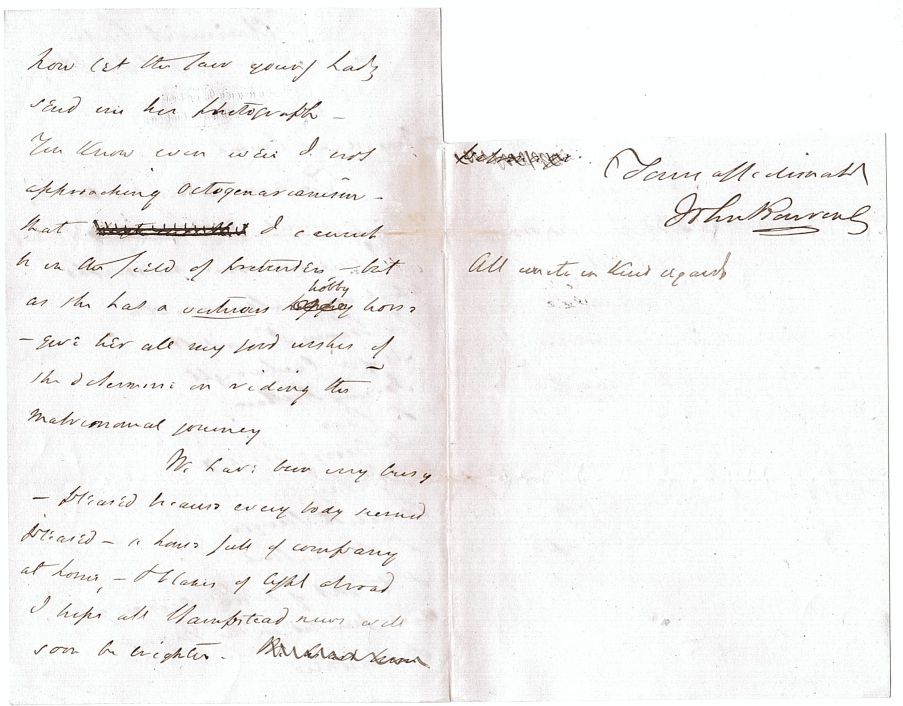 now let the fair young lady
send me her photograph –
You know even were I not
approaching Octogenarianism –
that I cannot
be in the field of pretenders – but
as she has a vicious hobby horse
– give her all my good wishes if
she determine on riding the
matrimonial journey
We have been very busy
– pleased because every body seemed
pleased – a house full of company
at home, – & blazes of light abroad
I hope all Hampstead news will
soon be brighter –
Yours affectionately
John Bowring
All unite in kind regards